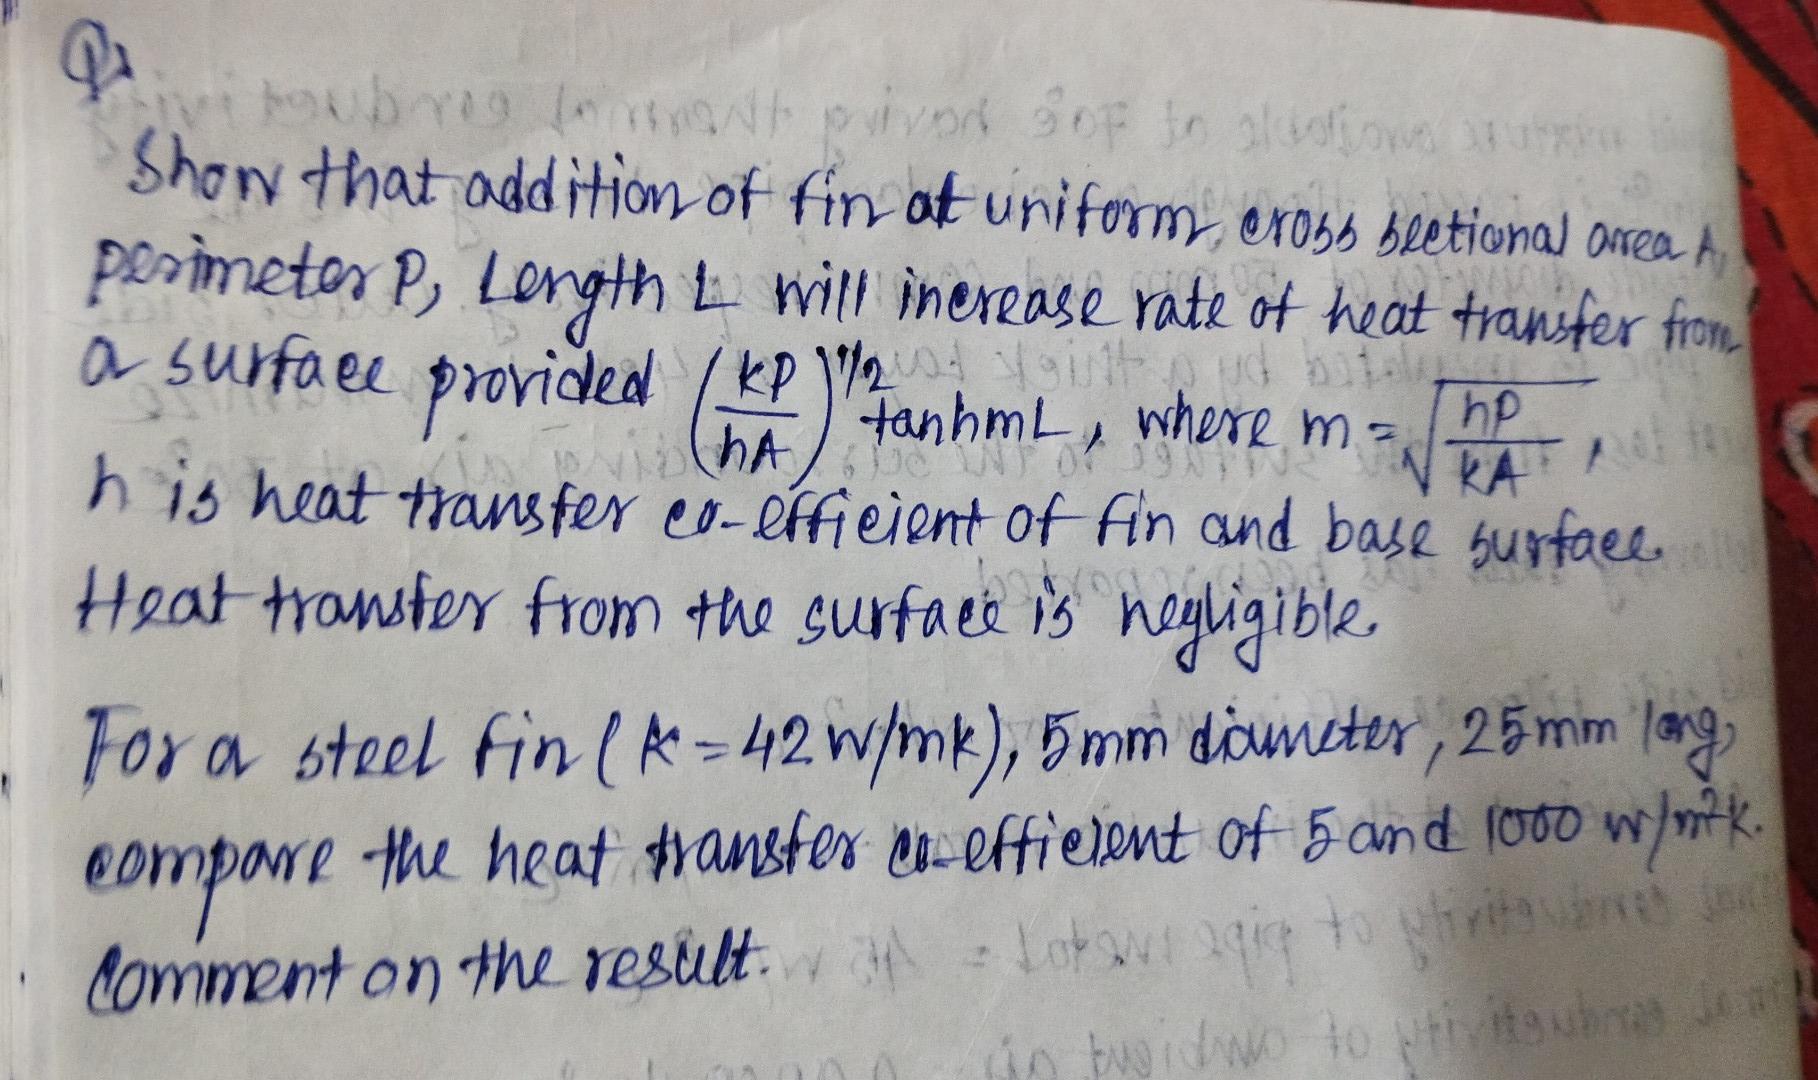 Q:
Show that addition of fin of uniform cross sectional area A,
perimeter P, Length L will increase rate of heat transfer from
a surface provided (kP/hA)^1/2 tanhmL, where m = √hP/kA,
h is heat transfer co-efficient of fin and base surface.
Heat transfer from the surface is negligible.
For a steel fin (k = 42 W/mk), 5mm diameter, 25mm long,
compare the heat transfer co-efficient of 5 and 1000 w/m²k.
Comment on the result.